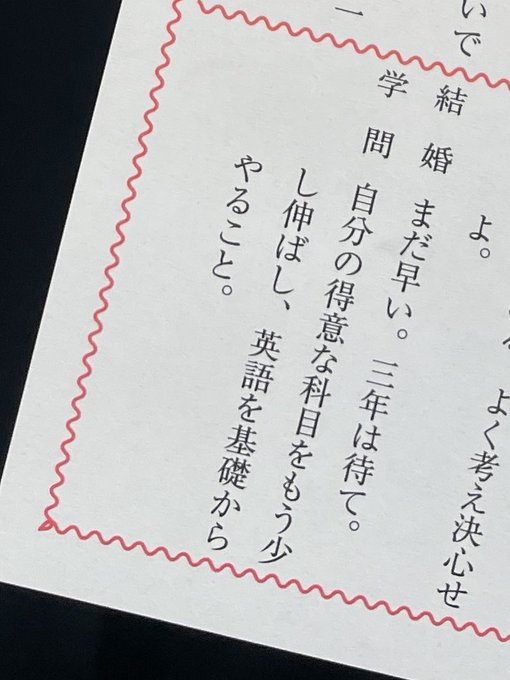 いで
一
よく考え決心せ
よ。
結婚 まだ早い。三年は待て。
学問 自分の得意な科目をもう少
し伸ばし、英語を基礎から
やること。